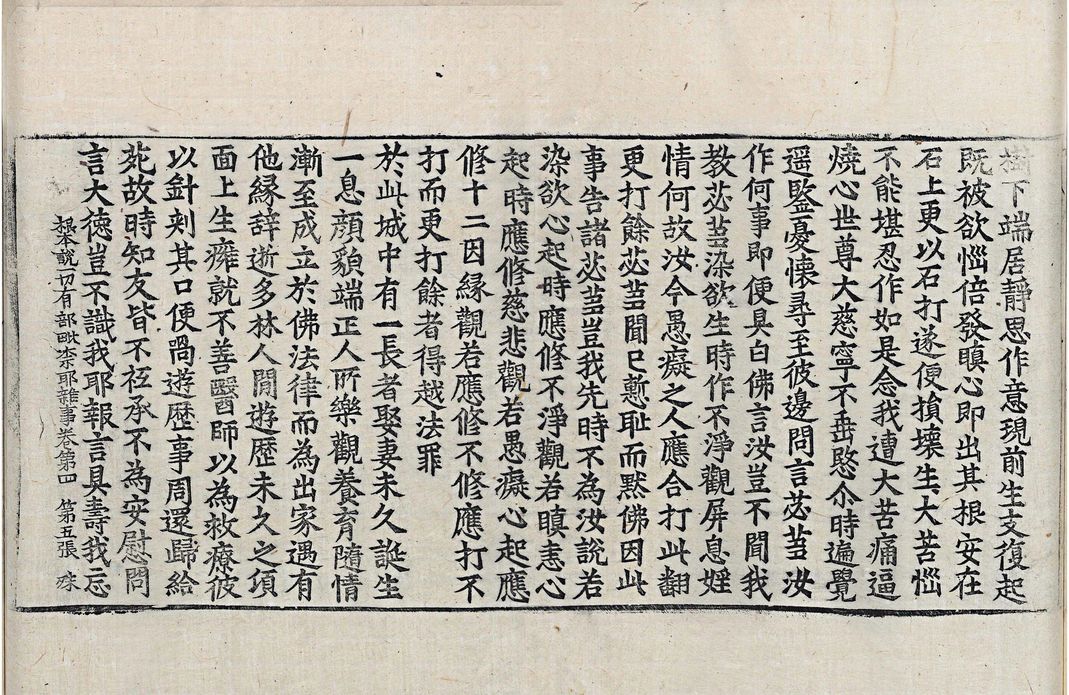 樹下端居靜思作意現前生支復起
既被欲惱倍發瞋心即出其根安在
石上更以石打遂便損壞生大苦惱
不能堪忍作如是念我遭大苦痛逼
燒心世尊大慈寧不垂愍尒時遍覺
遥鑒憂懷尋至彼邊問言苾芻汝
作何事即便具白佛言汝豈不聞我
教苾芻染欲生時作不淨觀屏息婬
情何故汝今愚癡之人應合打此翻
更打餘苾芻聞已慙恥而黙佛因此
事告諸苾芻豈我先時不為汝說若
染欲心起時應修不淨觀若瞋恚心
起時應修慈悲觀若愚癡心起應
修十二因緣觀若應修不修應打不
打而更打餘者得越法罪
於此城中有一長者娶妻未久誕生
一息顔貌端正人所樂觀養育隨情
漸至成立於佛法律而為出家遇有
他縁辞逝多林人間遊歷未久之頃
面上生癰就不善醫師以為救療彼
以針刺其口便喎遊歷事周還歸給
苑故時知友皆不祗承不為安慰問
言大德豈不識我耶報言具壽我忘
根本說一切有部毗柰耶雜事卷第四 第五張 殊